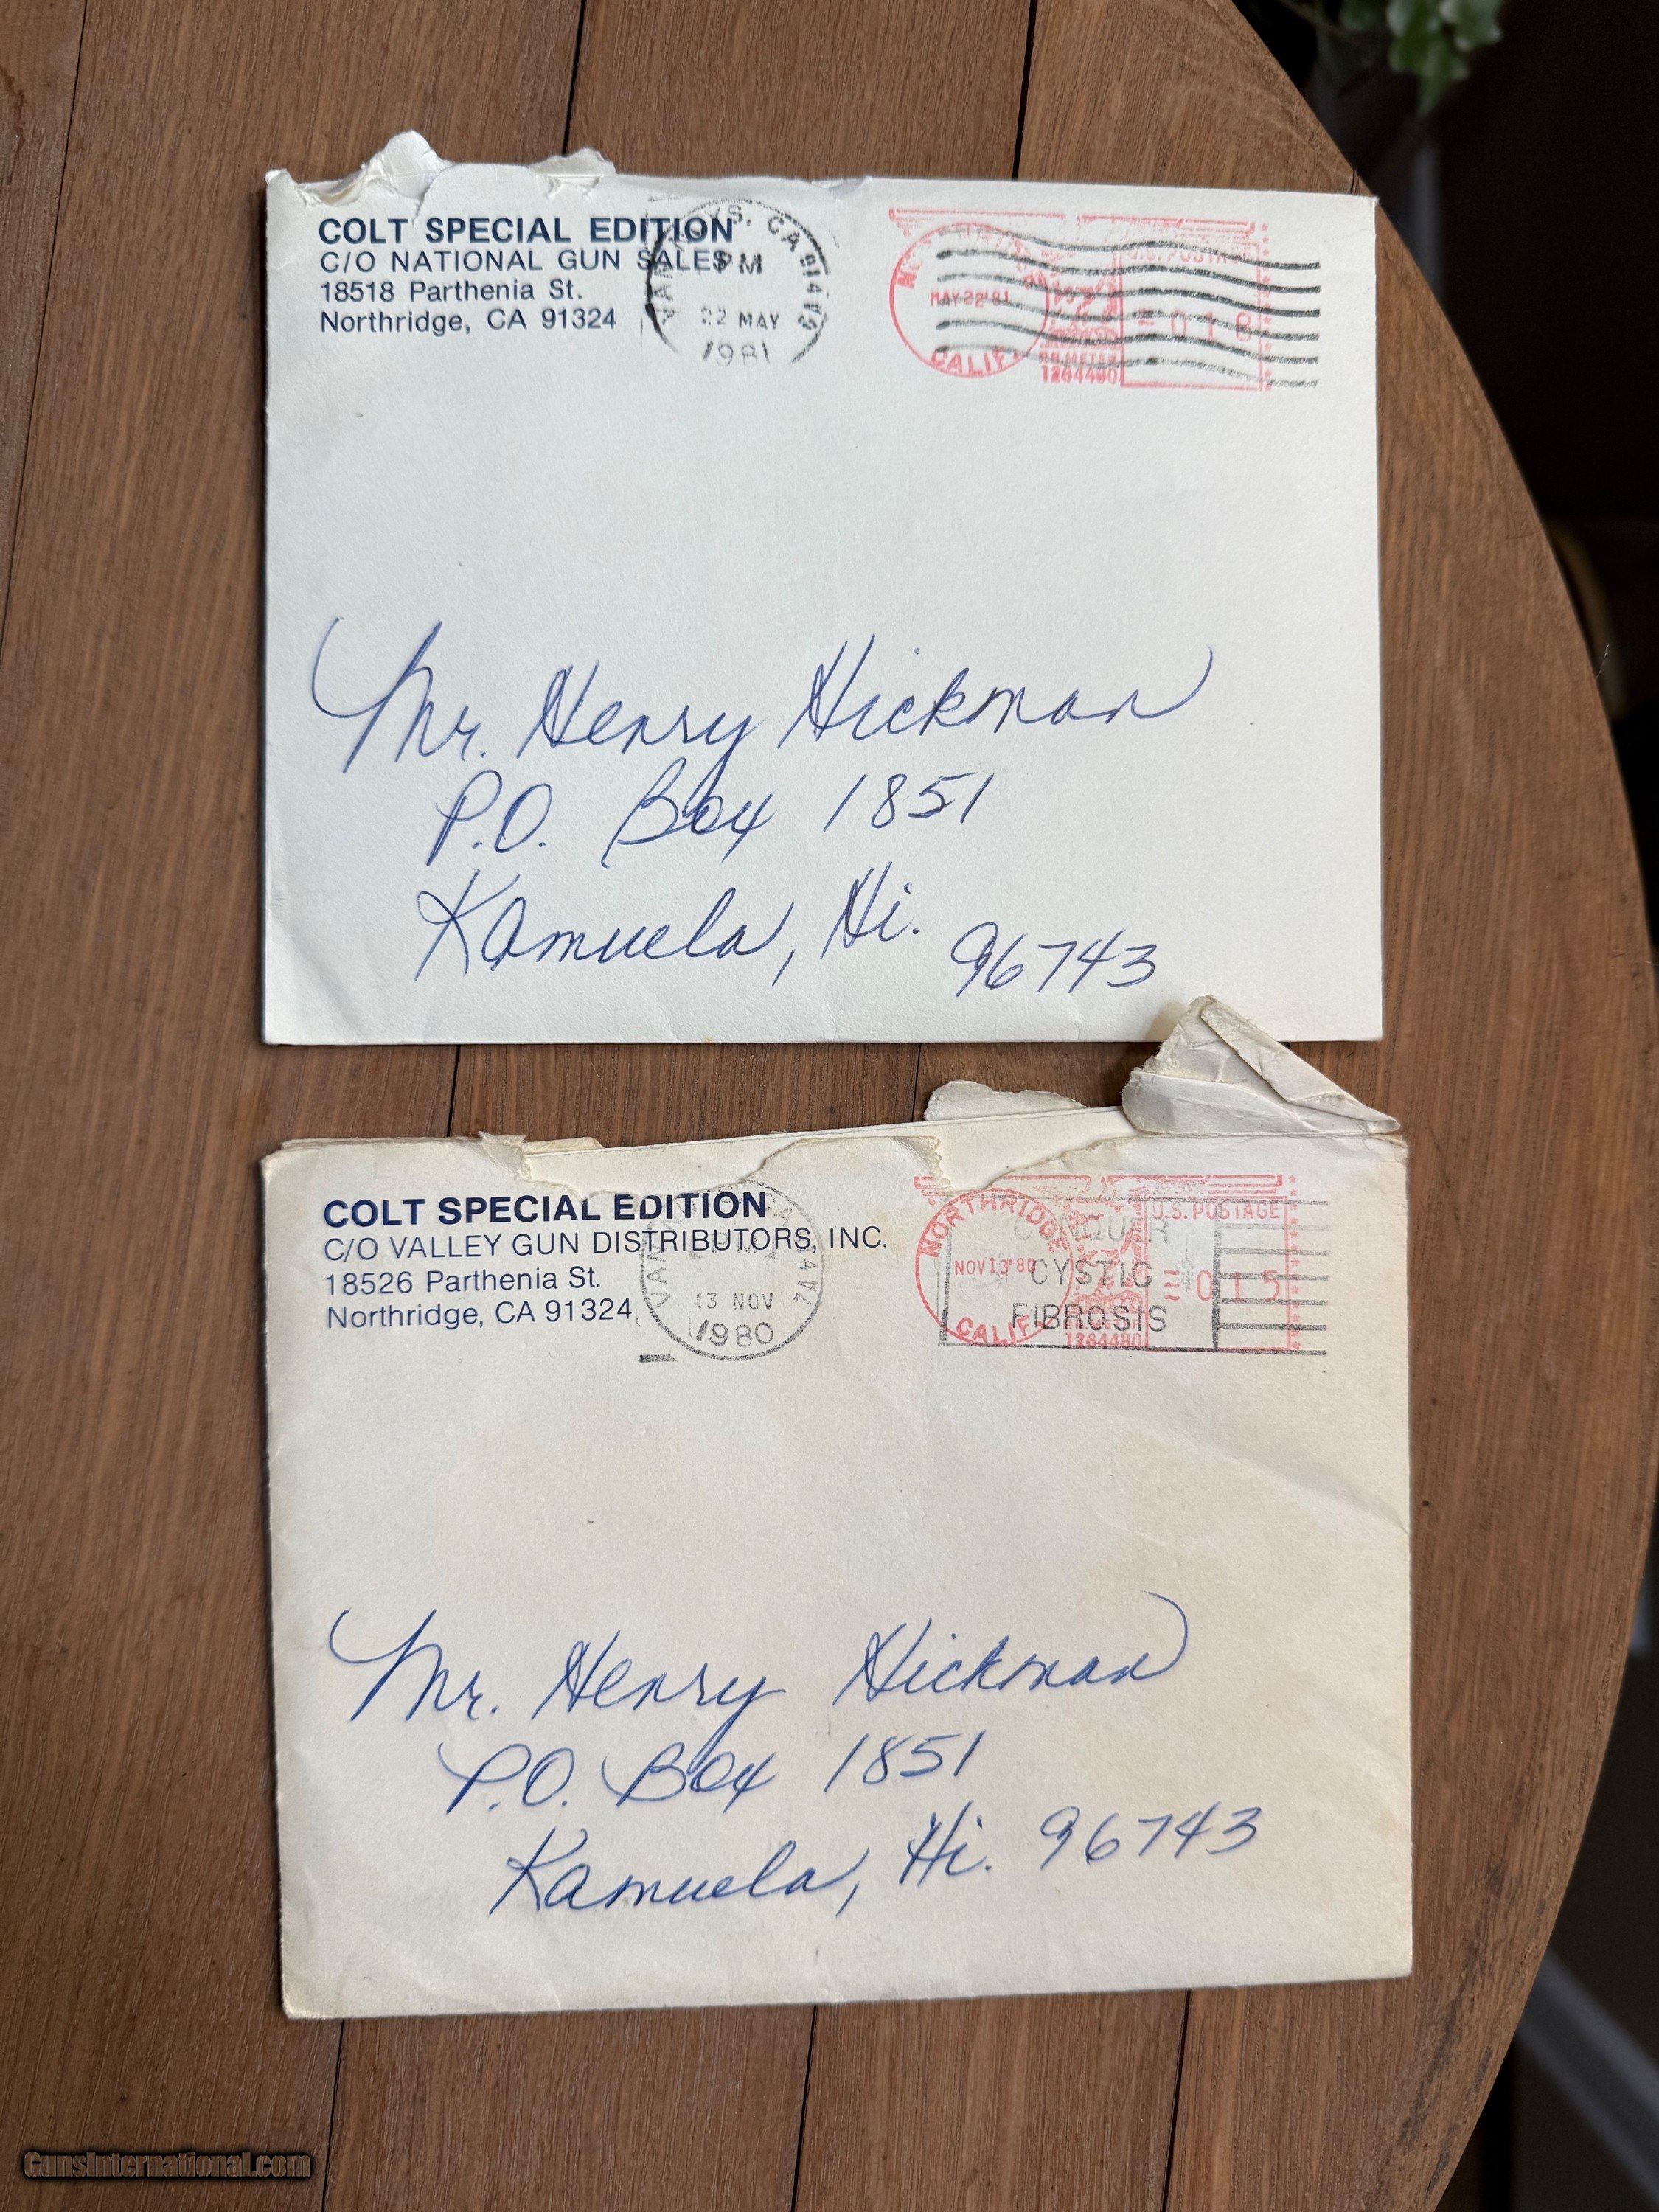 COLT SPECIAL EDITION
C/O NATIONAL GUN SALES
18518 Parthenia St.
Northridge, CA 91324
CA
PM
22 MAY
1981
MAY 22'81
CALIF.
U.S. POSTAGE
018
P.B. METER
1264480
Mr. Henry Hickman
P.O. Box 1851
Kamuela, Hi. 96743
COLT SPECIAL EDITION
C/O VALLEY GUN DISTRIBUTORS, INC.
18526 Parthenia St.
Northridge, CA 91324
13 NOV
1980
NORTHRIDGE
NOV 13'80
CALIF.
CONQUER
CYSTIC
FIBROSIS
U.S. POSTAGE
015
1264480
Mr. Henry Hickman
P.O. Box 1851
Kamuela, Hi. 96743
GunsInternational.com